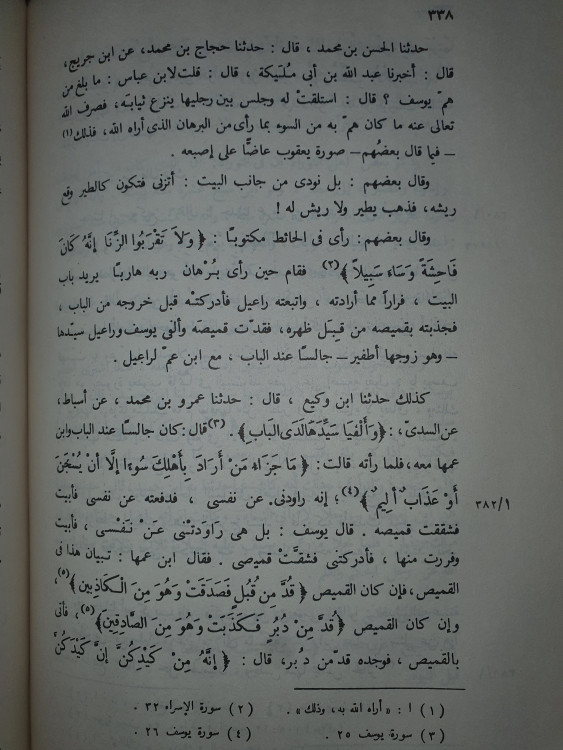 ٣٣٨
حدثنا الحسن بن محمد ، قال : حدثنا حجاج بن محمد، عن ابن جريج،
قال : أخبرنا عبد الله بن أبى مُلَيكة ، قال : قلت لابن عباس : ما بلغ من
همّ يوسف ؟ قال : استلقتْ له وجلس بين رجليها ينزع ثيابَه، فصرف الله
تعالى عنه ما كان همّ به من السوء بما رأى من البرهان الذى أراه الله، فذلك (١)
ــ فيما قال بعضُهم ــ صورة يعقوب عاضًّا على إصبعه .
وقال بعضهم : بل نودى من جانب البيت : أتزنى فتكون كالطير وقع
ريشه، فذهب يطير ولا ريش له !
وقال بعضهم: رأى فى الحائط مكتوبًا : ﴿ وَلاَ تَقْرَبُوا الزِّنَا إنَّهُ كَانَ
فَاحِشَةً وَسَاءَ سَبِيلاً ﴾(٢) فقام حين رأى بُرْهان ربه هاربًا يريد باب
البيت ، فراراً مما أرادته ، واتبعته راعيل فأدركتْه قبل خروجه من الباب ،
فجذبته بقميصه من قِبَل ظهره، فقدّت قميصَه وألفى يوسف وراعيل سيّدَها
ــ وهو زوجها أطفير ــ جالسًا عند الباب ، مع ابن عمّ لراعيل .
كذلك حدثنا ابن وكيع ، قال : حدثنا عمرو بن محمد ، عن أسباط،
عن السدىّ، : ﴿وَأَلْفَيَا سَيِّدَهَا لَدَى الْبَابِ﴾ . (٣)قال: كان جالسًا عند الباب وابن
عمها معه، فلما رأته قالت: ﴿ مَا جَزَاءُ مَنْ أَرَادَ بِأَهْلِكَ سُوءًا إلَّا أنْ يُسْجَنَ
أوْ عَذَابٌ ألِيمٌ ﴾(٤)؛ إنه راودنى عن نفسى ، فدفعته عن نفسى فأبيت
٣٨٢/١
فشققت قميصه . قال يوسف : بل هى رَاوَدتْنى عَنْ نَفْسى ، فأبيت
وفررت منها ، فأدركتنى فشقَّتْ قميصى . فقال ابن عمها : تبيان هذا فى
القميص، فإن كان القميص ﴿ قُدَّ مِن قُبُلٍ فَصَدَقَتْ وَهُوَ مِنَ الْكَاذِبِين ﴾(٥)،
وإن كان القميص ﴿قُدَّ مِنْ دُبُرٍ فَكَذَبَتْ وَهُوَ مِنَ الصَّادِقِينَ﴾(٥)، فأتى
بالقميص ، فوجده قدّ من دُبر، قال : ﴿ إنَّهُ مِنْ كَيْدِكُنَّ إنَّ كَيْدَكُنَّ
(١) ا : « أراه الله به، وذلك » . (٢) سورة الإسراء ٣٢ .
(٣) سورة يوسف ٢٥ . (٤) سورة يوسف ٢٦ .